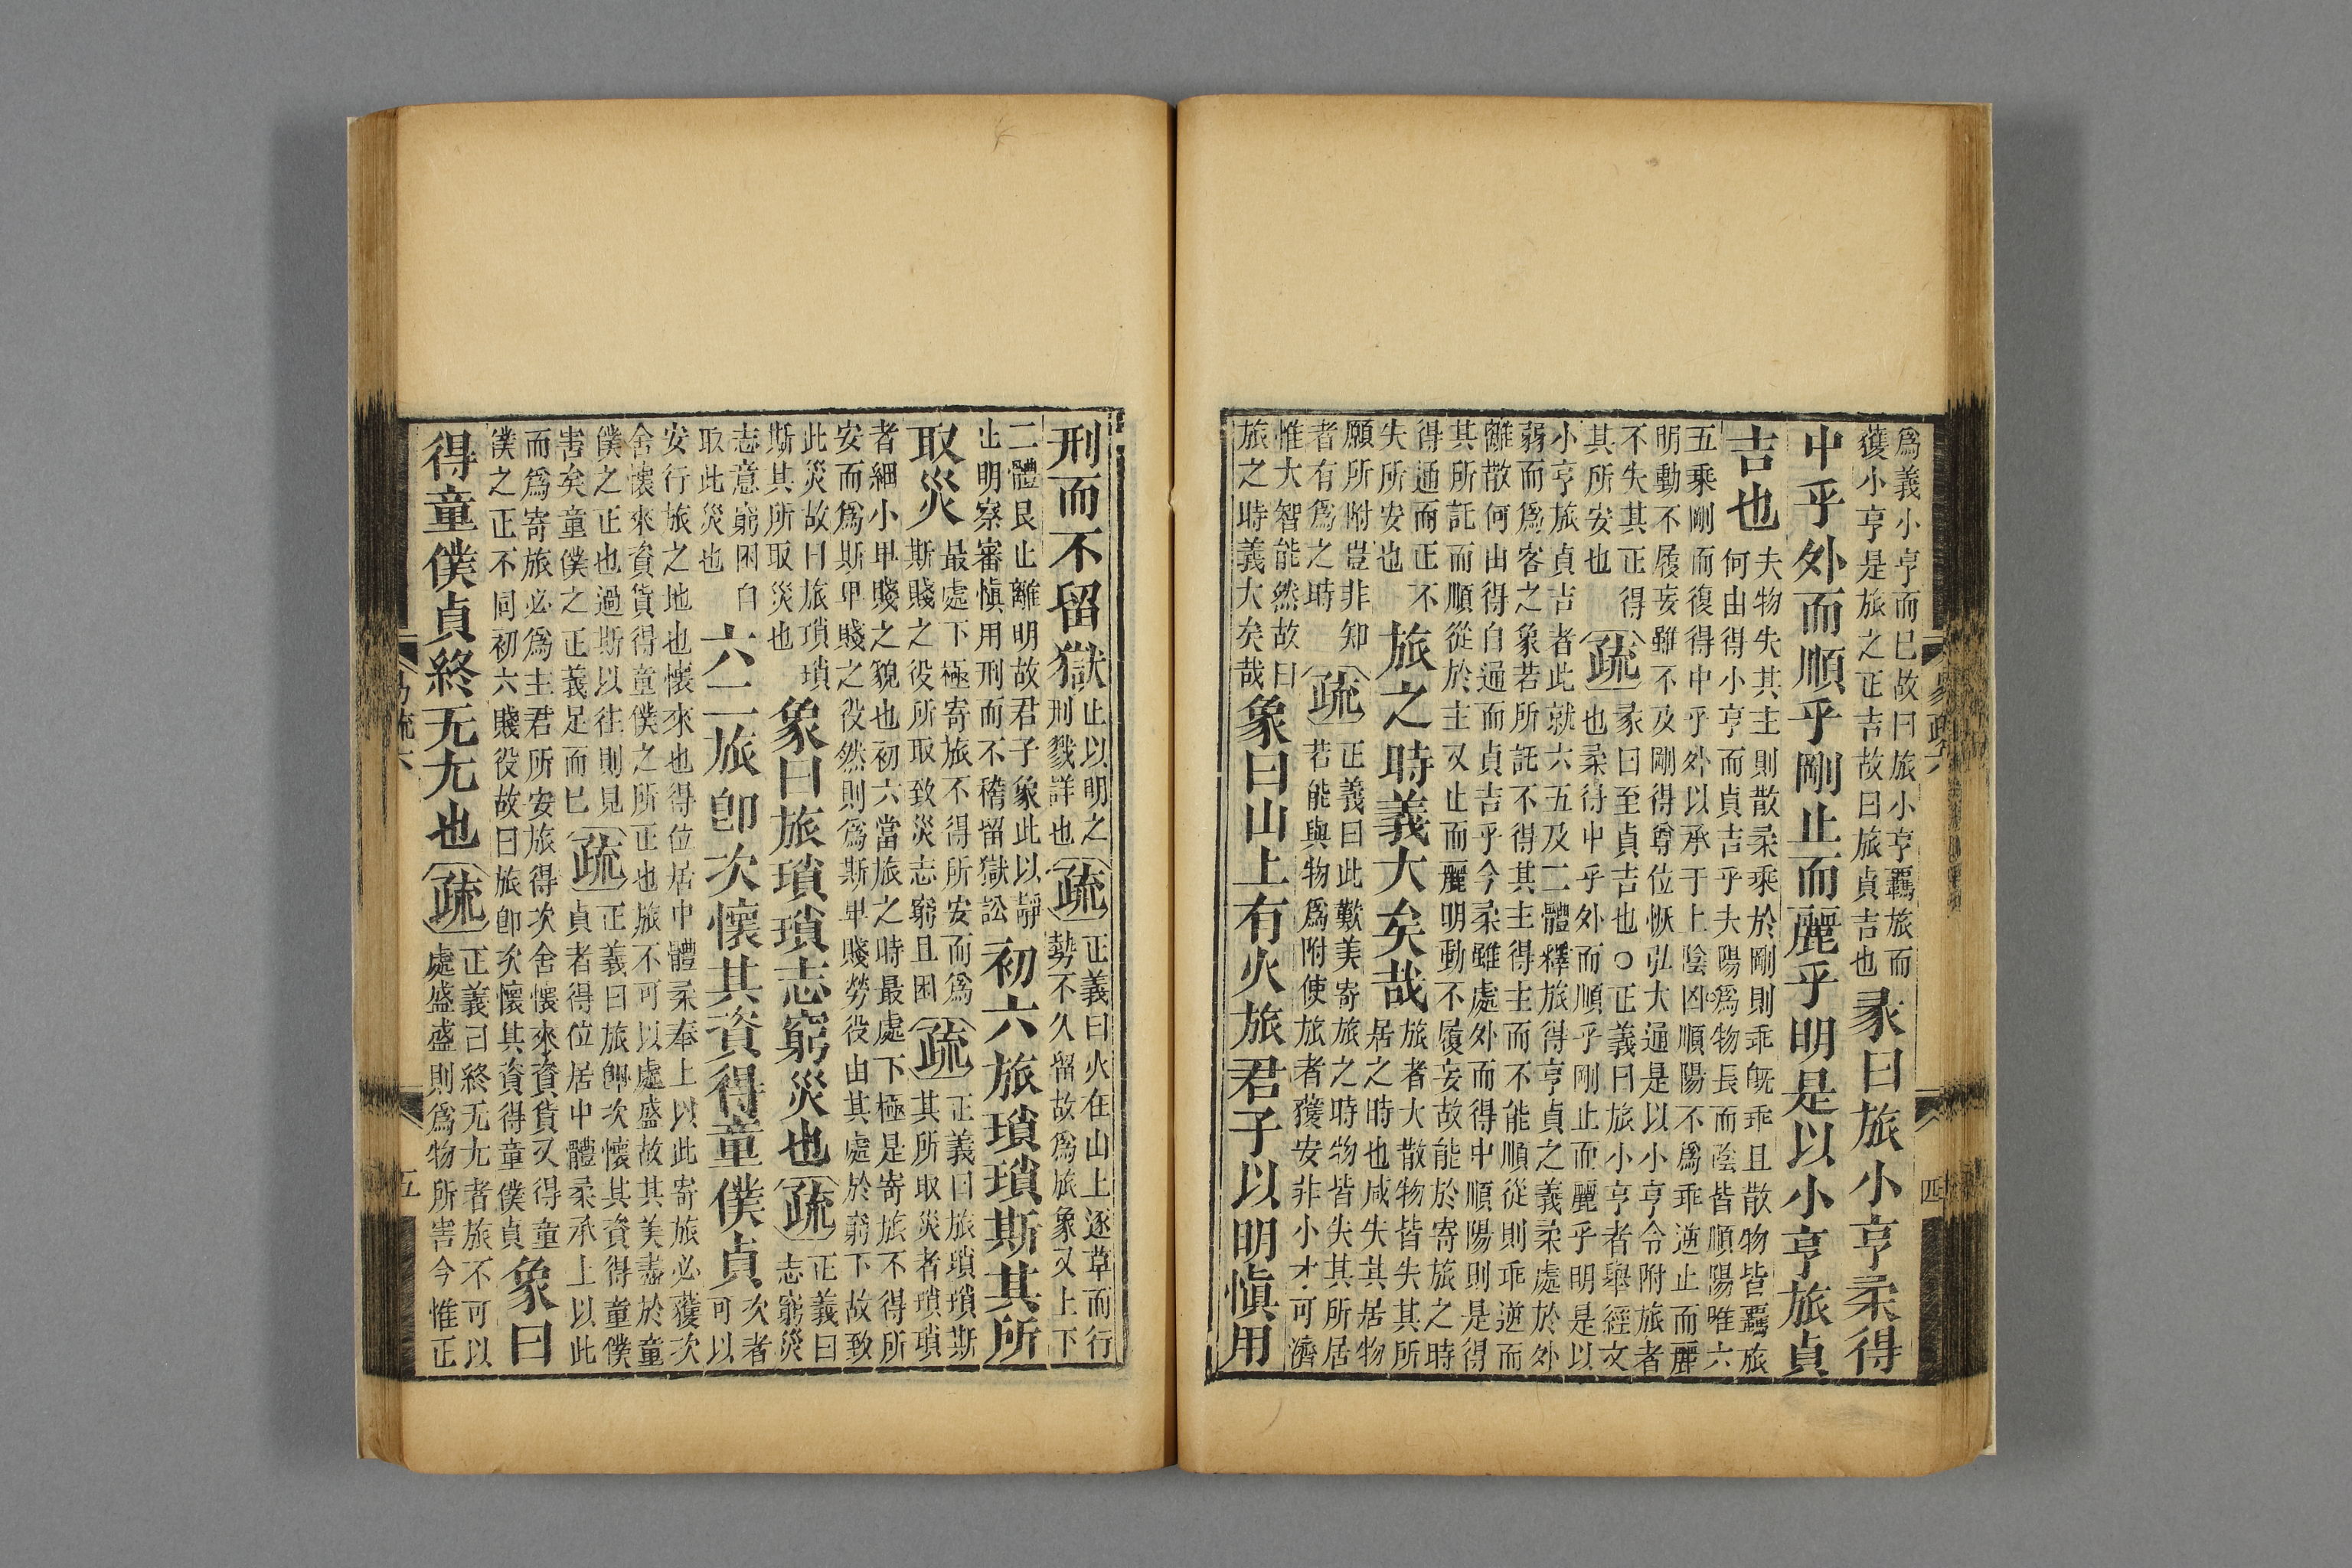 爲義小亨而已故曰旅小亨羈旅而
獲小亨是旅之正吉故曰旅貞吉也
彖曰旅小亨柔得
中乎外而順乎剛止而麗乎明是以小亨旅貞
吉也
夫物失其主則散柔乘於剛則乖旣乖且散物皆羈旅
何由得小亨而貞吉乎夫陽爲物長而陰皆順陽唯六
五乘剛而復得中乎外以承于上陰凶順陽不爲乖逆止而麗
明動不履妄雖不及剛得尊位恢弘大通是以小亨令附旅者
不失其正得
其所安也
疏
彖曰至貞吉也○正義曰旅小亨者舉經文
也柔得中乎外而順乎剛止而麗乎明是以
小亨旅貞吉者此就六五及二體釋旅得亨貞之義柔處於外
弱而爲客之象若所託不得其主得主而不能順從則乖逆而
離散何由得自通而貞吉乎今柔雖處外而得中順陽則是得
其所託而順從於主又止而麗明動不履妄故能於寄旅之時
得通而正不
失所安也
旅之時義大矣哉
旅者大散物皆失其所
居之時也咸失其居物
願所附豈非知
者有爲之時
疏
正義曰此歎美寄旅之時物皆失其所居
若能與物爲附使旅者獲安非小才可濟
惟大智能然故曰
旅之時義大矣哉
象曰山上有火旅君子以明愼用
易疏六
四
刑而不留獄
止以明之
刑戮詳也
疏
正義曰火在山上逐草而行
勢不久留故爲旅象又上下
二體艮止離明故君子象此以靜
止明察審愼用刑而不稽留獄訟
初六旅瑣瑣斯其所
取災
最處下極寄旅不得所安而爲
斯賤之役所取致災志窮且困
疏
正義曰旅瑣瑣斯
其所取災者瑣瑣
者細小卑賤之貌也初六當旅之時最處下極是寄旅不得所
安而爲斯卑賤之役然則爲斯卑賤勞役由其處於窮下故致
此災故曰旅瑣瑣
斯其所取災也
象曰旅瑣瑣志窮災也
疏
正義曰
志窮災
志意窮困自
取此災也
六二旅卽次懷其資得童僕貞
次者
可以
安行旅之地也懷來也得位居中體柔奉上以此寄旅必獲次
舍懷來資貨得童僕之所正也旅不可以處盛故其美盡於童
僕之正也過斯以往則見
害矣童僕之正義足而已
疏
正義曰旅卽次懷其資得童僕
貞者得位居中體柔承上以此
而爲寄旅必爲主君所安旅得次舍懷來資貨又得童
僕之正不同初六賤役故曰旅卽次懷其資得童僕貞
象曰
得童僕貞終无尤也
疏
正義曰終无尤者旅不可以
處盛盛則爲物所害今惟正
五